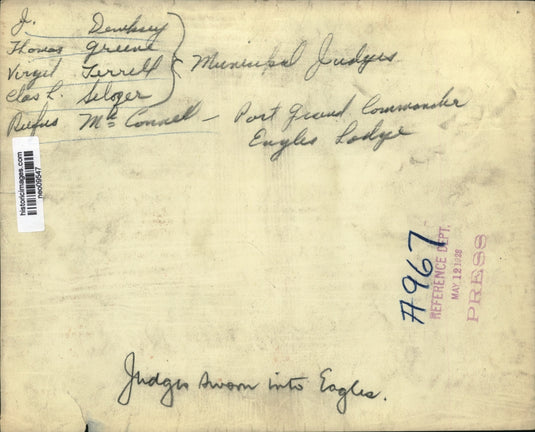 J. Dewksey
Thomas Greene
Virgil Terrell
Chas L. Selzer
Municipal Judges
Rufus McConnell - Past Grand Commander
Eagles Lodge
historicimages.com
neo09547
A967
REFERENCE DEPT.
MAY 12 1928
PRESS
Judges sworn into Eagles.